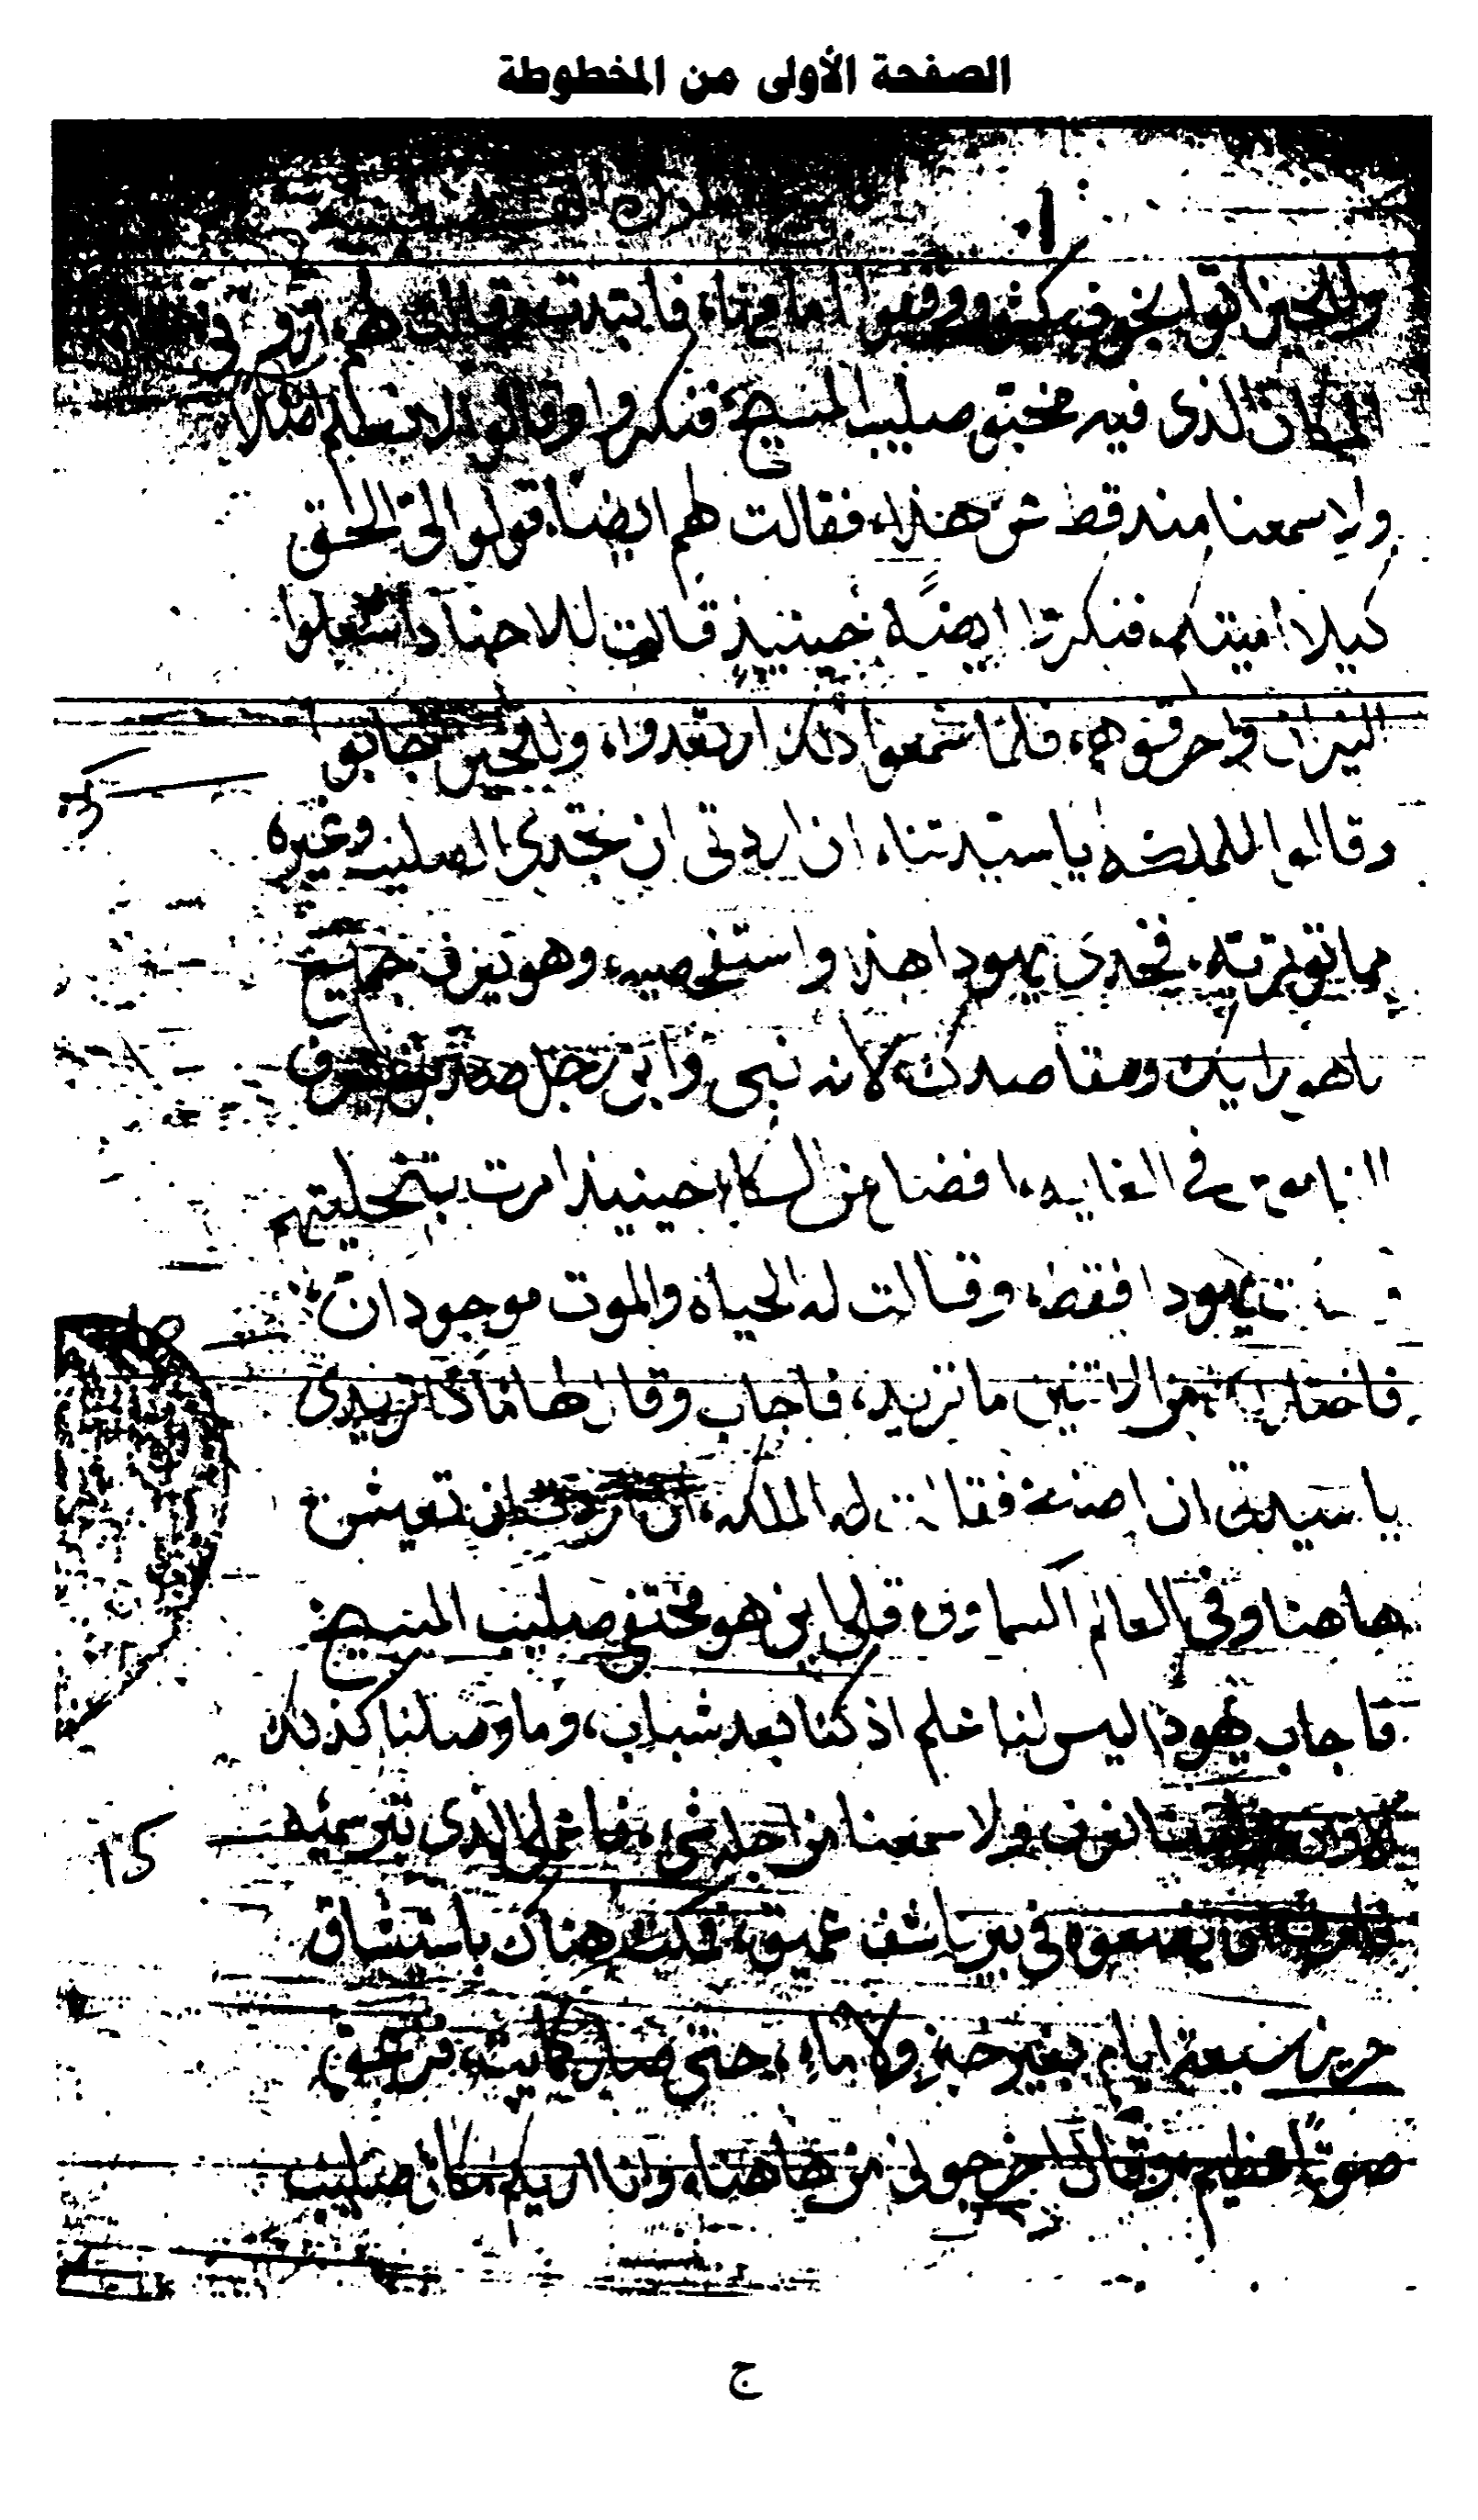 الصفحة الأولى من المخطوطة
وللحين اتوا بخوف كثير ووقفوا امامها، فابتدت وقالت لهم اروني
المكان الذي فيه مختفي صليب المسيح فنكروا وقالوا لا نعلم اصلاً
ولا سمعنا منه قط شي هذا، فقالت لهم ايضاً قولوا لي الحق
كيلا اميتكم، فنكروا ايضاً حينيذ قالت للاجناد اشعلوا
النيران واحرقوهم، فلما سمعوا ذلك ارتعدوا، وللحين جابوا
وقالوا للملكه يا ستيدتنا، ان اردتي ان تجدي الصليب وغيره
مما توثرتيه، فخدي يهودا هذا واستفحصيه، وهو يعرف جميع
ما هو رايك ومقاصدك لانه نبي وابن رجل صديق
الناموس في الغايه، افضل من الكل، حينيذ امرت بتخليتهم
يهودا فقط، وقالت له الحياة والموت موجودان
فاختار من الاثنين ما تريد، فاجاب وقال لها ماذا تريدي
يا سيدتي ان اصنع فقالت له الملكه، ان اردت ان تعيش
هاهنا وفي العالم السماوي قل لي اين هو مختفي صليب المسيح
فاجاب يهودا ليس لنا علم اذ كنا بعد شباب، وما وصلنا كذلك
نعرف ولا سمعنا من اجله شي، فاعملي الذي ترسميه
يضعوه في بير ناشف عميق، فمكث هناك باستيثاق
حريز سبعة ايام بغير خبز ولا ماء، حتى صار كميت، فزعق
صوتاً عظيم وقال اخرجوني من هاهنا، وانا اريكم مكان صليب
١٥
ج